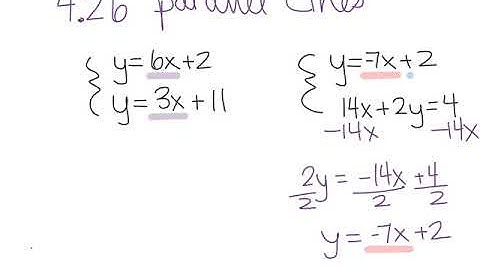 4.26 parallel lines
y=6x+2
y=3x+11
y=-7x+2
14x+2y=4
-14x -14x
2y = -14x +4
2 2 2
y = -7x+2